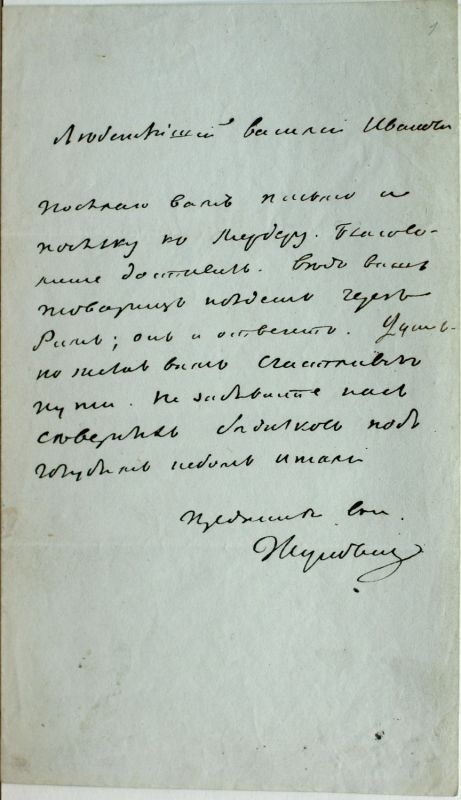 1
Любезнѣйшій Василій Иванович
посылаю вамъ письмо и
посылку къ Мердеру. Благово-
лите доставить. Ваш
товарищъ поѣдетъ черезъ
Римъ; онъ и отвезетъ. Усерд-
но желаю вамъ счастливаго
пути. Не забывайте насъ
сѣверныхъ подъ
голубымъ небомъ Италіи
Преданный вам
Жуковский